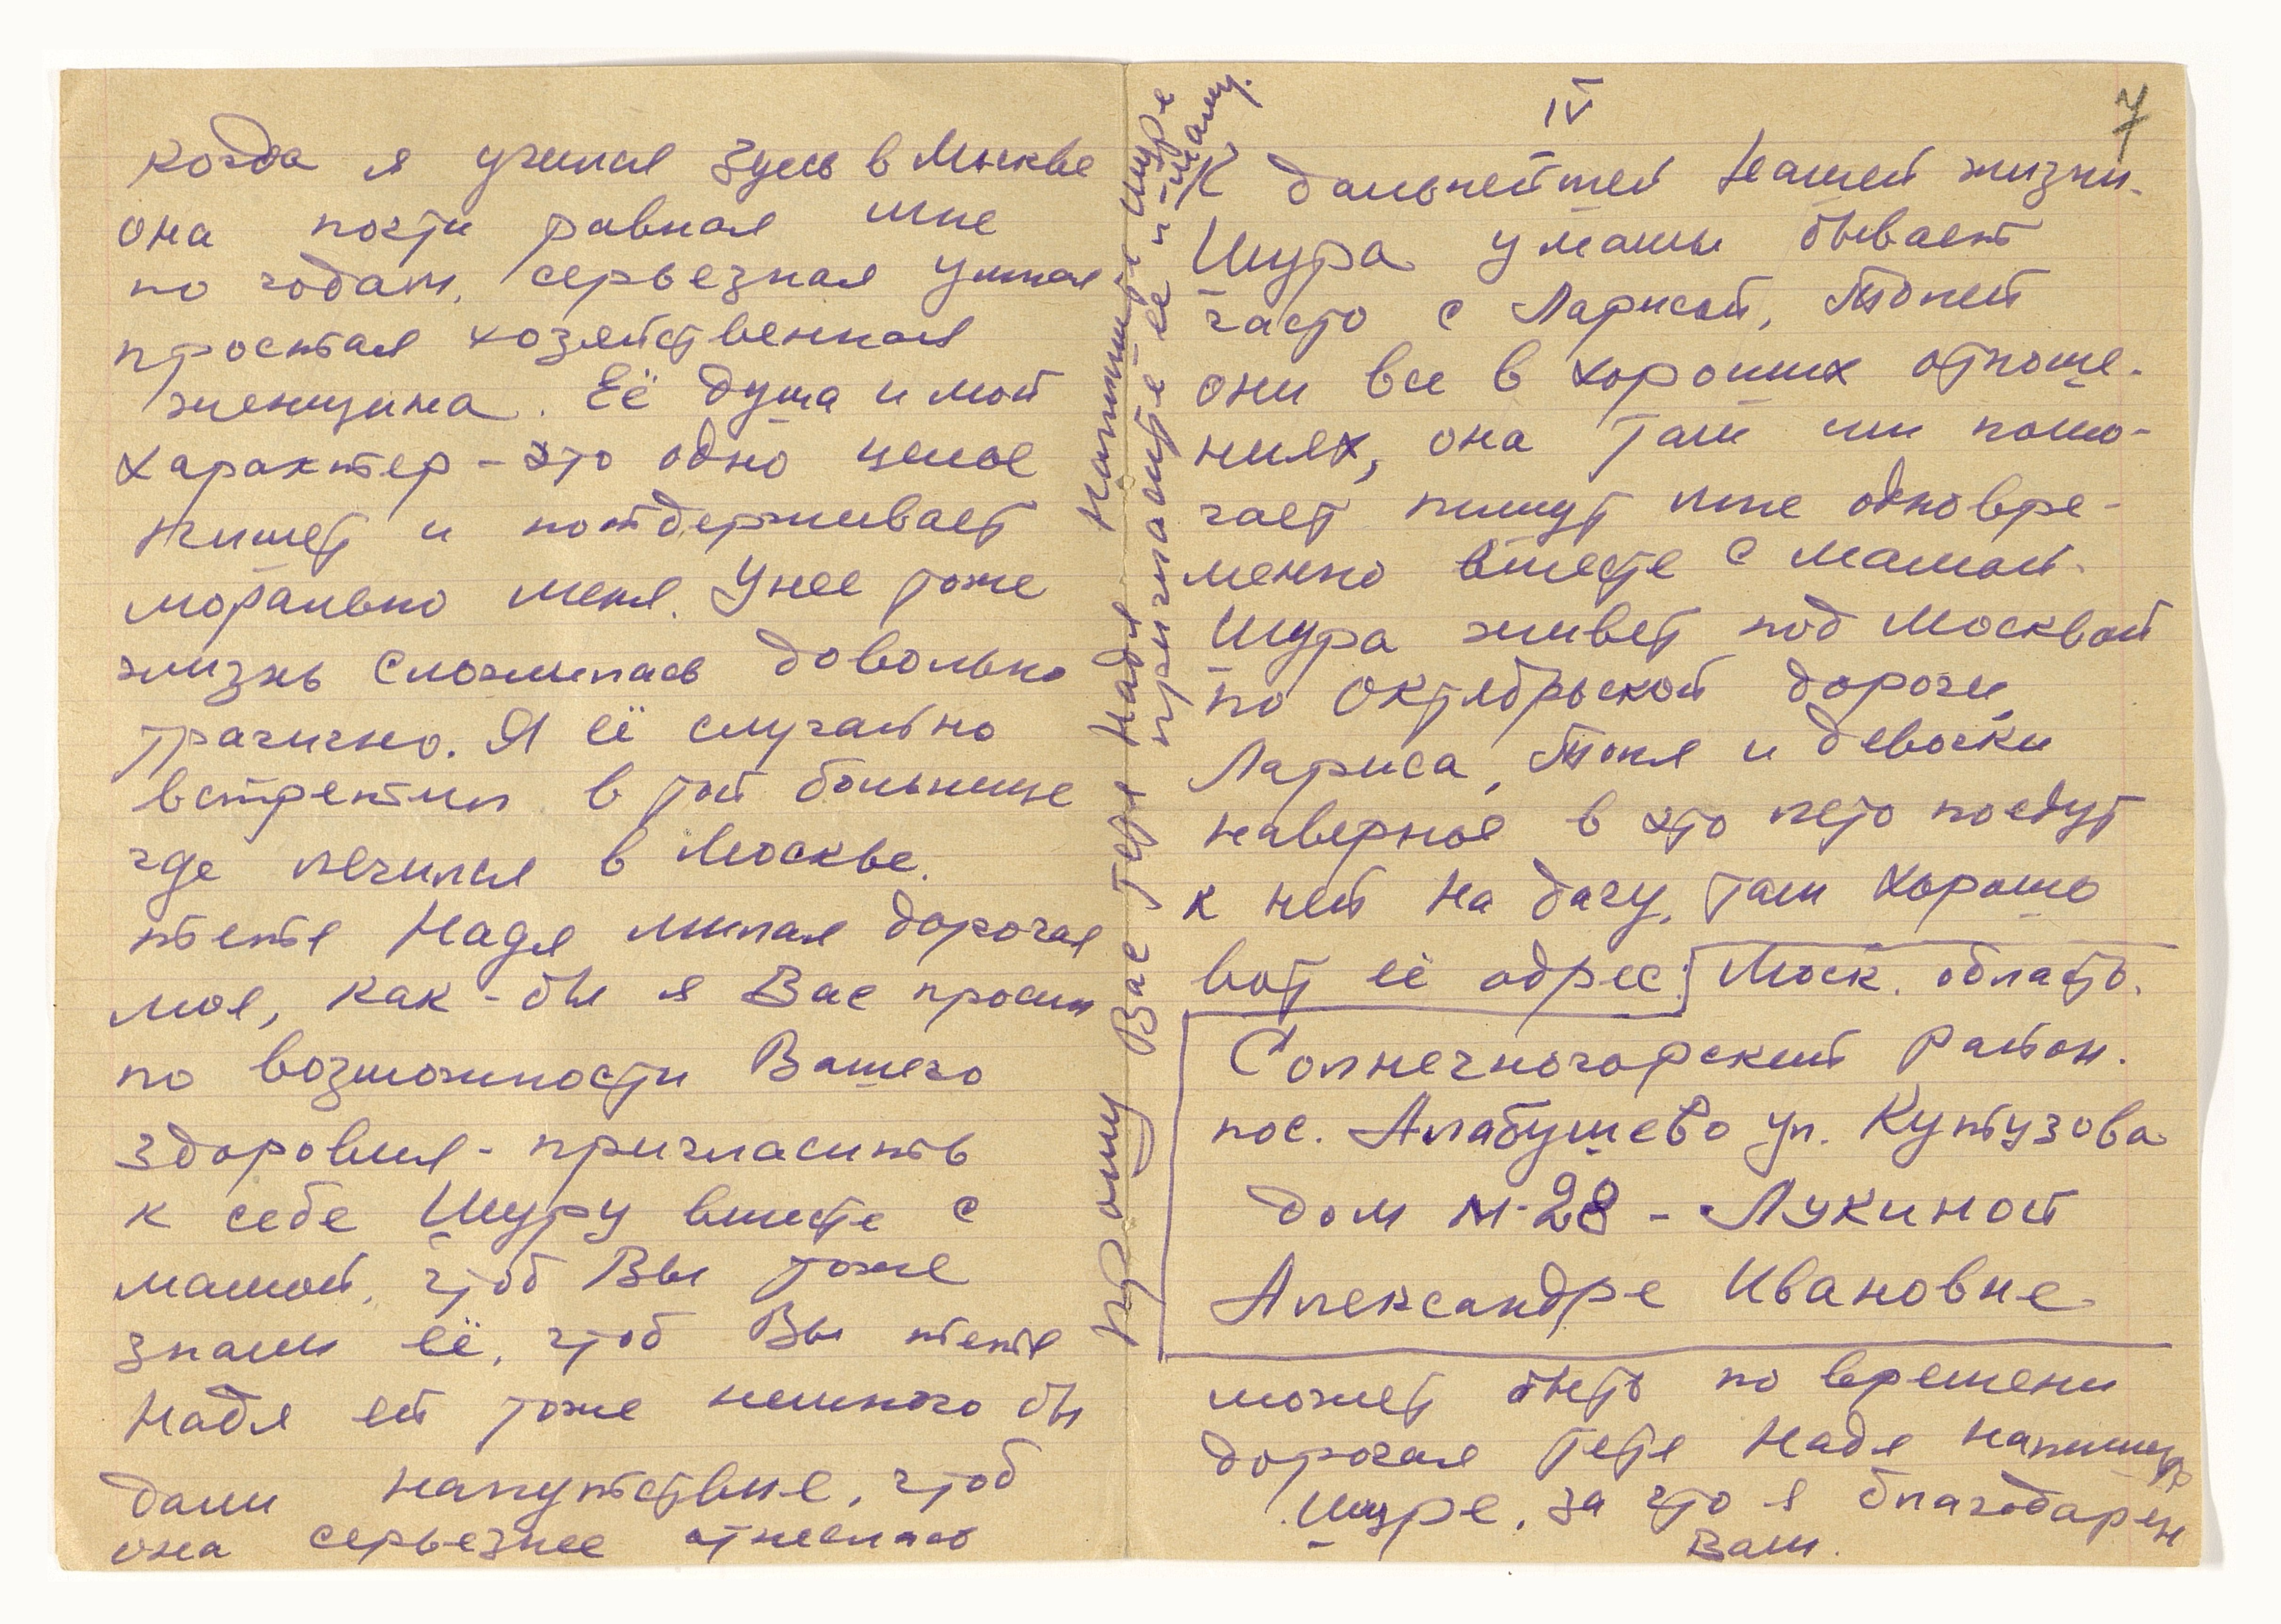 когда я учился здесь в Москве
она почти равная мне
по годам, серьезная умная
простая хозяйственная
женщина. Её душа и мой
характер – это одно целое
пишет и потдерживает
морально меня. У нее тоже
жизнь сложилась довольно
трагично. Я её случайно
встретил в той больнице
где лечился в Москве.
тетя Надя милая дорогая
моя, как-бы я Вас просил
по возможности Вашего
здоровия - пригласить
к себе Шуру вместе с
мамой, чтоб Вы тоже
знали её, чтоб Вы тетя
Надя ей тоже немного бы
дали напутствие, чтоб
она серьезнее отнеслась
прошу Вас тетя Надя напишите Шуре
пригласите её и маму.
IV
7
К дальнейшей нашей жизни.
Шура у мамы бывает
часто с Ларисой, Тоней
они все в хороших отноше-
ниях, она там им помо-
гает пишут мне одновре-
менно вместе с мамой.
Шура живет под Москвой
по Октябрьской дороги,
Лариса, Тоня и девочки
наверное в это лето поедут
к ней на дачу, там хорошо
вот её адрес: Моск. область.
Солнечногорский район.
пос. Алабушево ул. Кутузова
дом №-28 - Лукиной
Александре Ивановне
может быть по времени
дорогая тетя Надя напишите
Шуре, за что я благодарен
Вам.